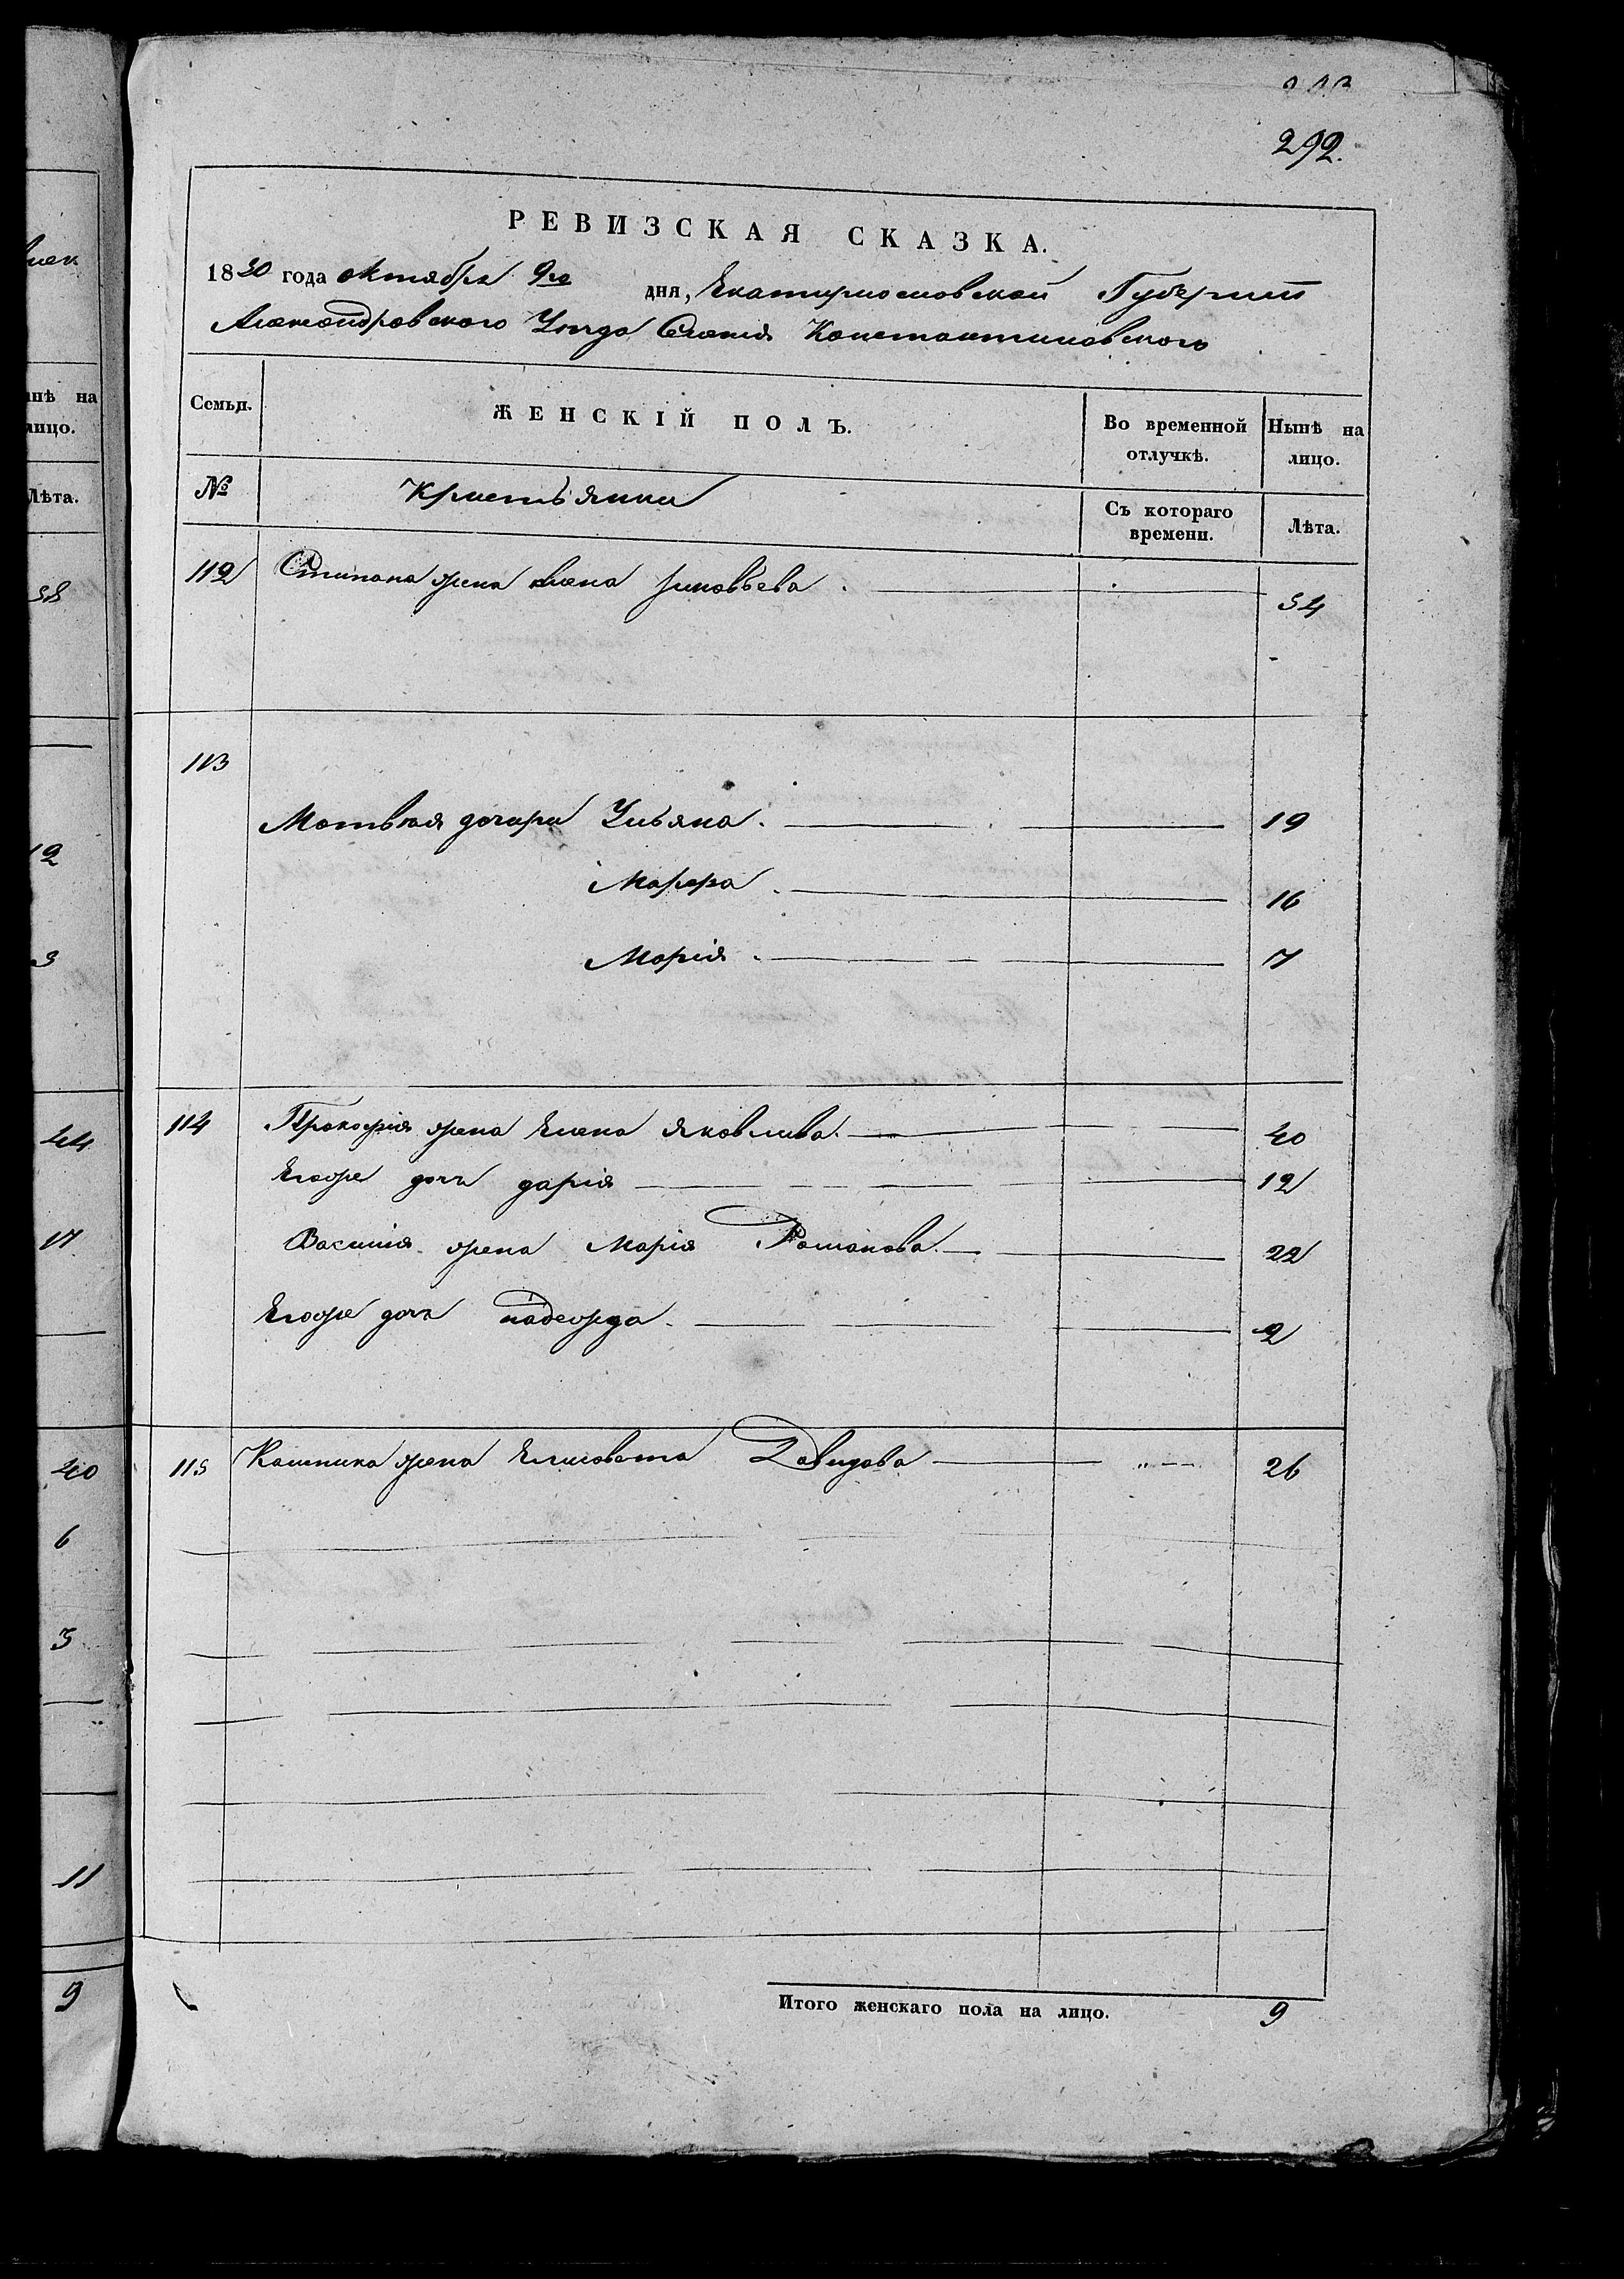 292.
РЕВИЗСКАЯ СКАЗКА.
1850 года октября 9го дня, Екатериославской Губернии
Александровского Уезда Селения Константиновского
Семьи. ЖЕНСКІЙ ПОЛЪ. Во временной отлучкѣ. Нынѣ на лицо.
№ Крестьянки Съ котораго времени. Лѣта.
112 Степана жена Елена Зиновьева 54
113
Матвея дочери Ульяна 19
Марфа 16
Марія 7
114 Прокофія жена Елена Яковлева 40
Егоже дочь дарія 12
Василия жена Марія Романова 22
Егоже дочь надежда 2
115 жена Елисовета Давидова 26
Итого женскаго пола на лицо. 9
нѣ на
лицо.
Лѣта.
58
12
3
44
17
40
6
3
11
9